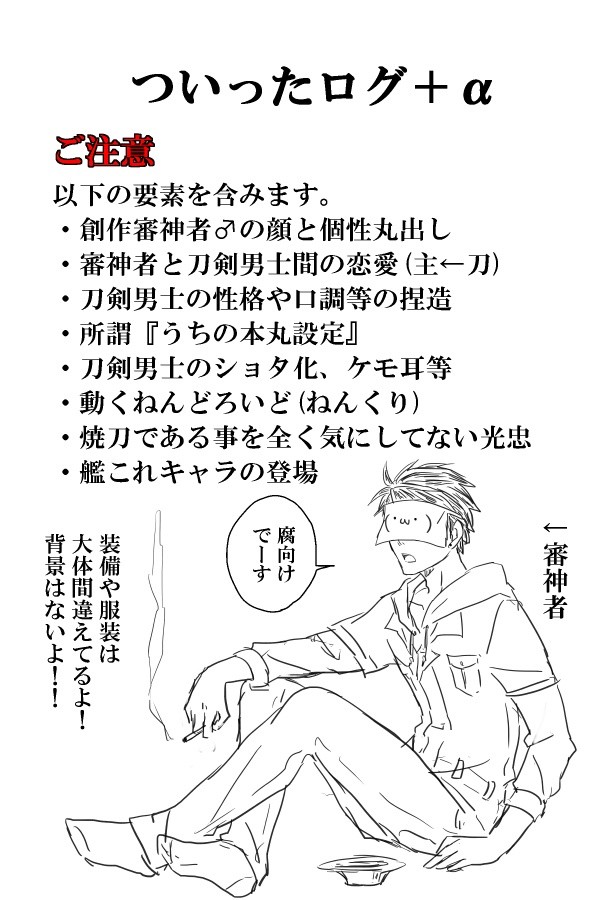 ついったログ＋α
ご注意
以下の要素を含みます。
・創作審神者♂の顔と個性丸出し
・審神者と刀剣男士間の恋愛(主←刀)
・刀剣男士の性格や口調等の捏造
・所謂『うちの本丸設定』
・刀剣男士のショタ化、ケモ耳等
・動くねんどろいど(ねんくり)
・焼刀である事を全く気にしてない光忠
・艦これキャラの登場
←審神者
腐向け
でーす
装備や服装は
大体間違えてるよ！
背景はないよ！！